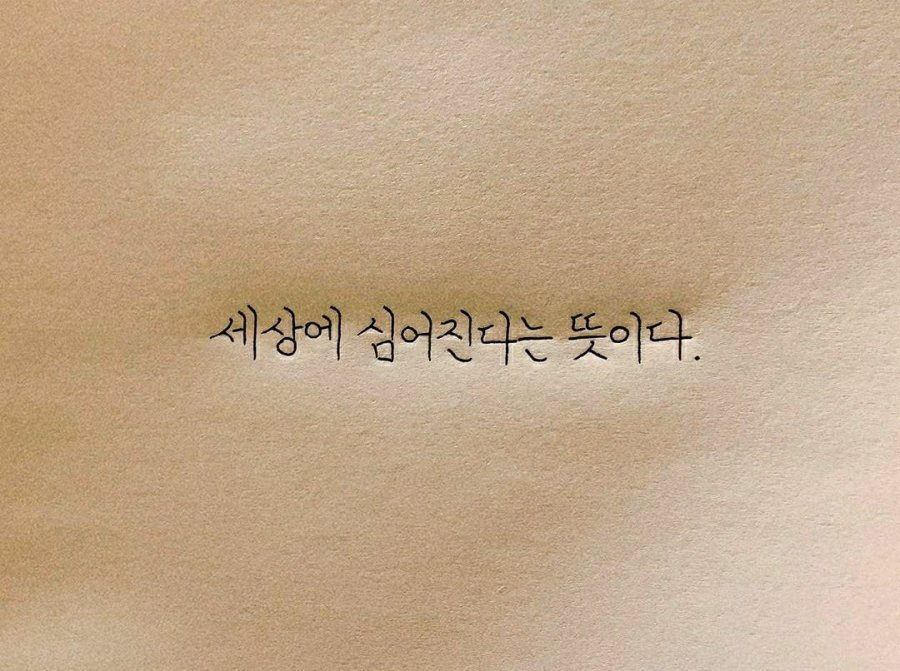 세상에 심어진다는 뜻이다.